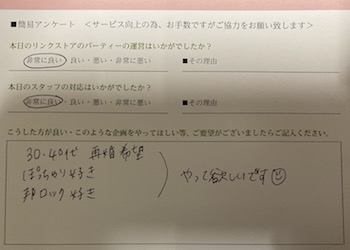 ■簡易アンケート ＜サービス向上の為、お手数ですがご協力をお願い致します＞
本日のリンクストアのパーティーの運営はいかがでしたか？
非常に良い・良い・悪い・非常に悪い ■その理由
本日のスタッフの対応はいかがでしたか？
非常に良い・良い・悪い・非常に悪い ■その理由
こうした方が良い・このような企画をやってほしい等、ご要望がございましたらご記入ください。
30.40代 再婚希望
ぽっちゃり好き
邦ロック好き
やって欲しいです